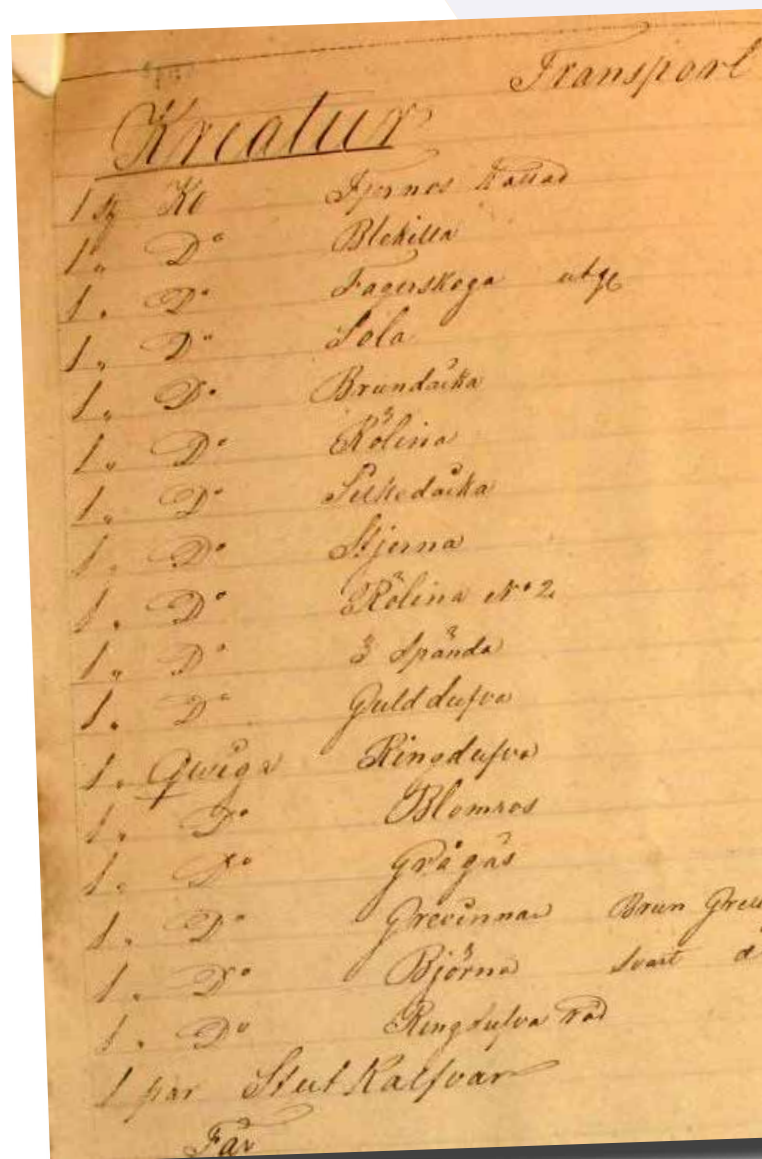 Transport
Kreatur
1 st Ko Stjernos kallad
1 " Do Blekilla
1 " Do Fagerskoga
1 " Do Sola
1 " Do Brundäcka
1 " Do Rölina
1 " Do Silkedäcka
1 " Do Stjerna
1 " Do Rölina No 2
1 " Do 3 Spända
1 " Do Gulddufva
1 " Qwiga Ringdufva
1 " Do Blomros
1 " Do Grågås
1 " Do Grevinna Brun
1 " Do Björna Svart
1 " Do Ringdufva röd
1 par Stut Kalfvar
Får